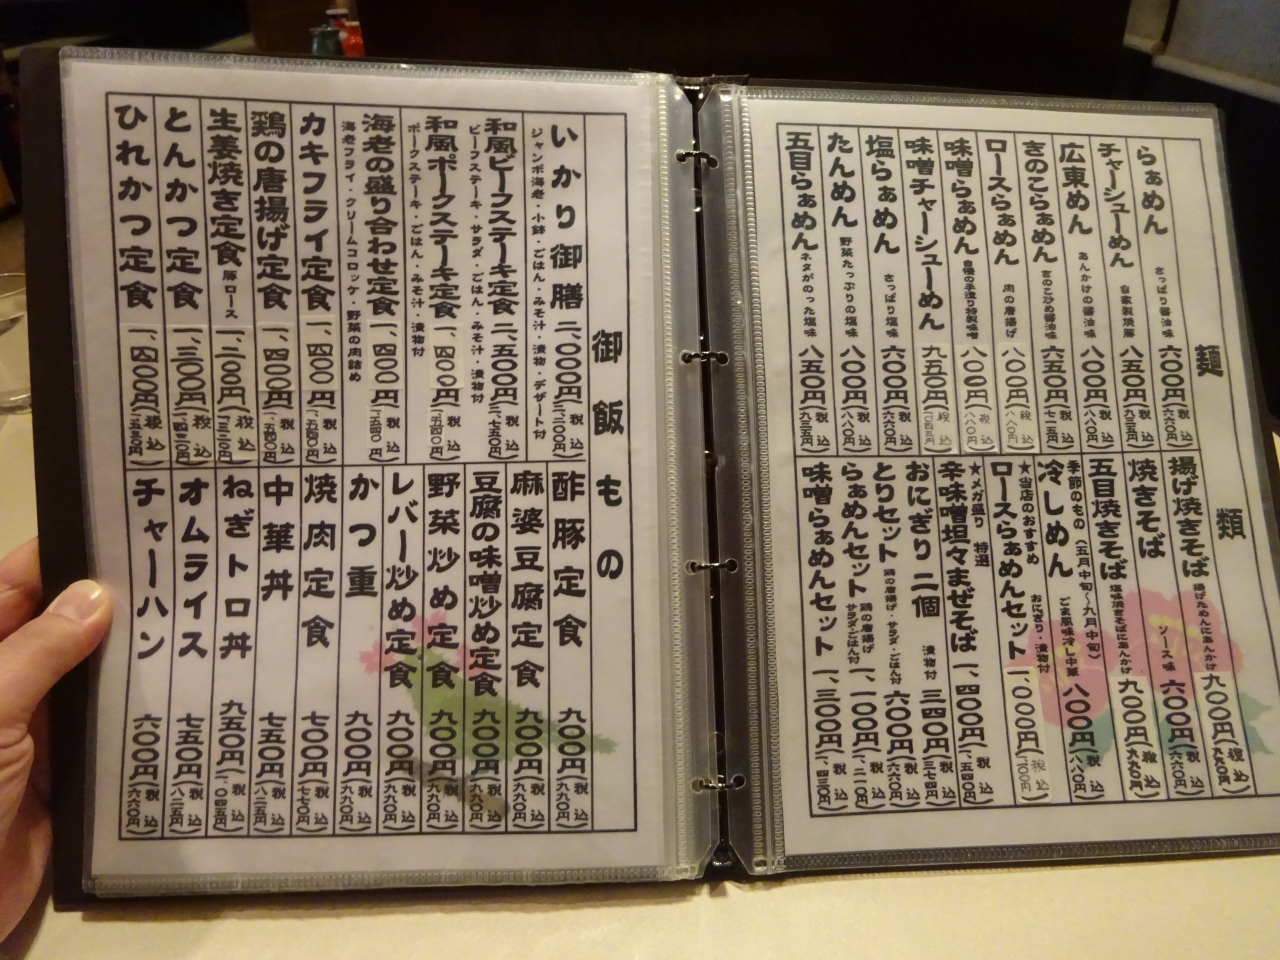 麺類
らぁめん さっぱり醤油味 六〇〇円(税込六六〇円)
チャーシューめん 自家製焼豚 八五〇円(税込九三五円)
広東めん あんかけの醤油味 八〇〇円(税込八八〇円)
きのこらぁめん きのこ炒め醤油味 六五〇円(税込七一五円)
ロースらぁめん 肉の唐揚げ 八〇〇円(税込八八〇円)
味噌らぁめん 自慢の手造り特製味噌 八〇〇円(税込八八〇円)
味噌チャーシューめん 九五〇円(税込一、〇四五円)
塩らぁめん さっぱり塩味 六〇〇円(税込六六〇円)
たんめん 野菜たっぷりの塩味 八〇〇円(税込八八〇円)
五目らぁめん ネタがのった塩味 八五〇円(税込九三五円)
揚げ焼きそば 揚げためんにあんかけ 九〇〇円(税込九九〇円)
焼きそば ソース味 六〇〇円(税込六六〇円)
五目焼きそば 塩味焼きそばにあんかけ 九〇〇円(税込九九〇円)
季節のもの(五月中旬〜九月中旬)
冷しめん ごま風味冷し中華 八〇〇円(税込八八〇円)
★当店のおすすめ
ロースらぁめんセット おにぎり・漬物付 一、〇〇〇円(税込一、一〇〇円)
★メガ盛り 特選
辛味噌坦々まぜそば 一、四〇〇円(税込一、五四〇円)
おにぎり 二個 漬物付 三四〇円(税込三七四円)
とりセット 鶏の唐揚げ・サラダ・ごはん付 六〇〇円(税込六六〇円)
らぁめんセット 鶏の唐揚げ サラダ・ごはん付 一、一〇〇円(税込一、二一〇円)
味噌らぁめんセット 一、三〇〇円(税込一、四三〇円)
御飯もの
いかり御膳 二、〇〇〇円(税込二、二〇〇円)
ジャンボ海老・小鉢・ごはん・みそ汁・漬物・デザート付
和風ビーフステーキ定食 二、五〇〇円(税込二、七五〇円)
ビーフステーキ・サラダ・ごはん・みそ汁・漬物付
和風ポークステーキ定食 一、四〇〇円(税込一、五四〇円)
ポークステーキ・ごはん・みそ汁・漬物付
海老の盛り合わせ定食 一、四〇〇円(税込一、五四〇円)
海老フライ・クリームコロッケ・野菜の肉詰め
カキフライ定食 一、四〇〇円(税込一、五四〇円)
鶏の唐揚げ定食 一、四〇〇円(税込一、五四〇円)
生姜焼き定食 豚ロース 一、二〇〇円(税込一、三二〇円)
とんかつ定食 一、三〇〇円(税込一、四三〇円)
ひれかつ定食 一、四〇〇円(税込一、五四〇円)
酢豚定食 九〇〇円(税込九九〇円)
麻婆豆腐定食 九〇〇円(税込九九〇円)
豆腐の味噌炒め定食 九〇〇円(税込九九〇円)
野菜炒め定食 九〇〇円(税込九九〇円)
レバー炒め定食 九〇〇円(税込九九〇円)
かつ重 九〇〇円(税込九九〇円)
焼肉定食 七〇〇円(税込七七〇円)
中華丼 七五〇円(税込八二五円)
ねぎトロ丼 九五〇円(税込一、〇四五円)
オムライス 七五〇円(税込八二五円)
チャーハン 六〇〇円(税込六六〇円)